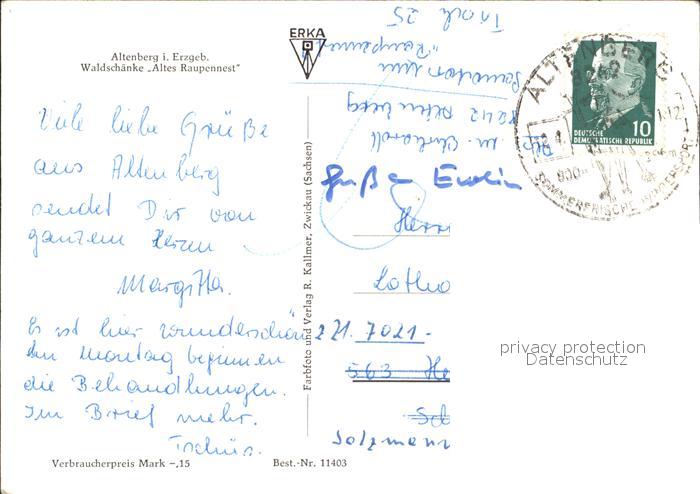 Altenberg i. Erzgeb.
Waldschänke „Altes Raupennest"
Viele liebe Grüße
aus Altenberg
sendet Dir von
ganzem Herzen
Margitta.
Es ist hier wunderschön
Am Montag beginnen
die Behandlungen.
Im Brief mehr.
Tschüs.
Verbraucherpreis Mark -,15
Best.-Nr. 11403
Farbfoto und Verlag R. Kallmer, Zwickau (Sachsen)
ERKA
Tisch 25
„Raupennest
Sanatorium
8242 Altenberg
Grüße Erwin
Herr
Lotha
7021-
563 He
Sch
Salzmann
ALTENBERG
DEUTSCHE
DEMOKRATISCHE REPUBLIK
10
SOMMERFRISCHE WINTERSPORT
privacy protection
Datenschutz